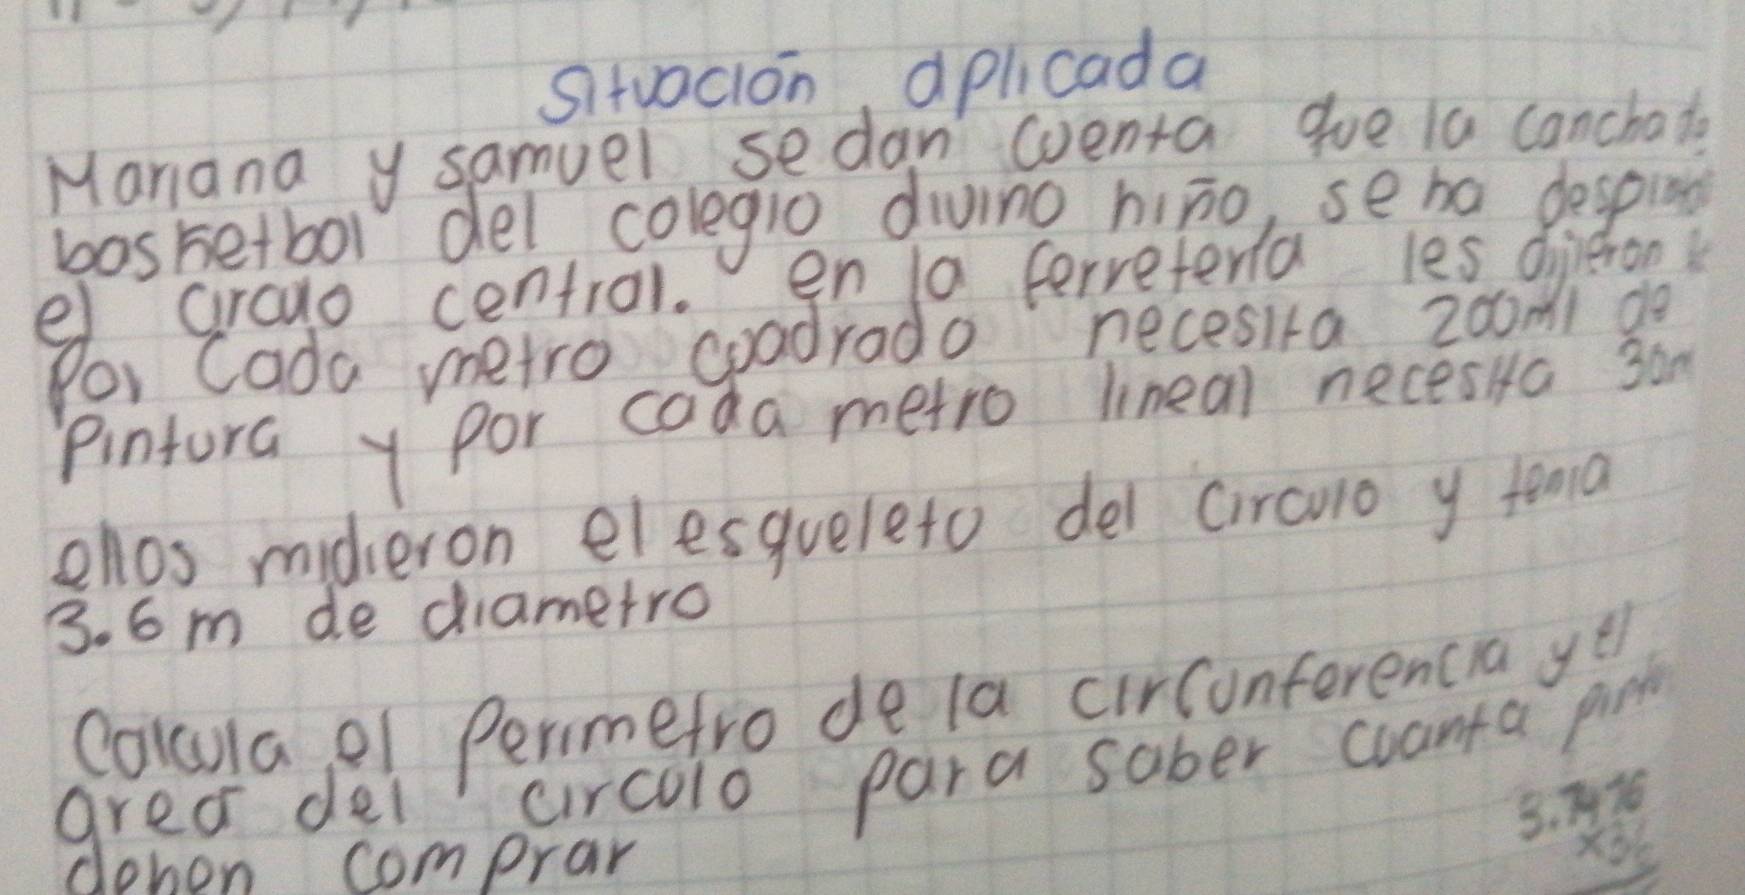 Situación aplicada
Mariana y samuel se dan cuenta que la cancha de
basketbol del colegio divino niño, se ha
el circulo central. en la ferreteria les dijeron
Por cada metro cuadrado necesita 200Ml de
Pintura y por cada metro lineal necesita
ellos midieron el esqueleto del circulo y tenia
3.6 m de diametro
Calcula el Perimetro de la circunferencia y el
area del circulo para saber cuanta
deben comprar